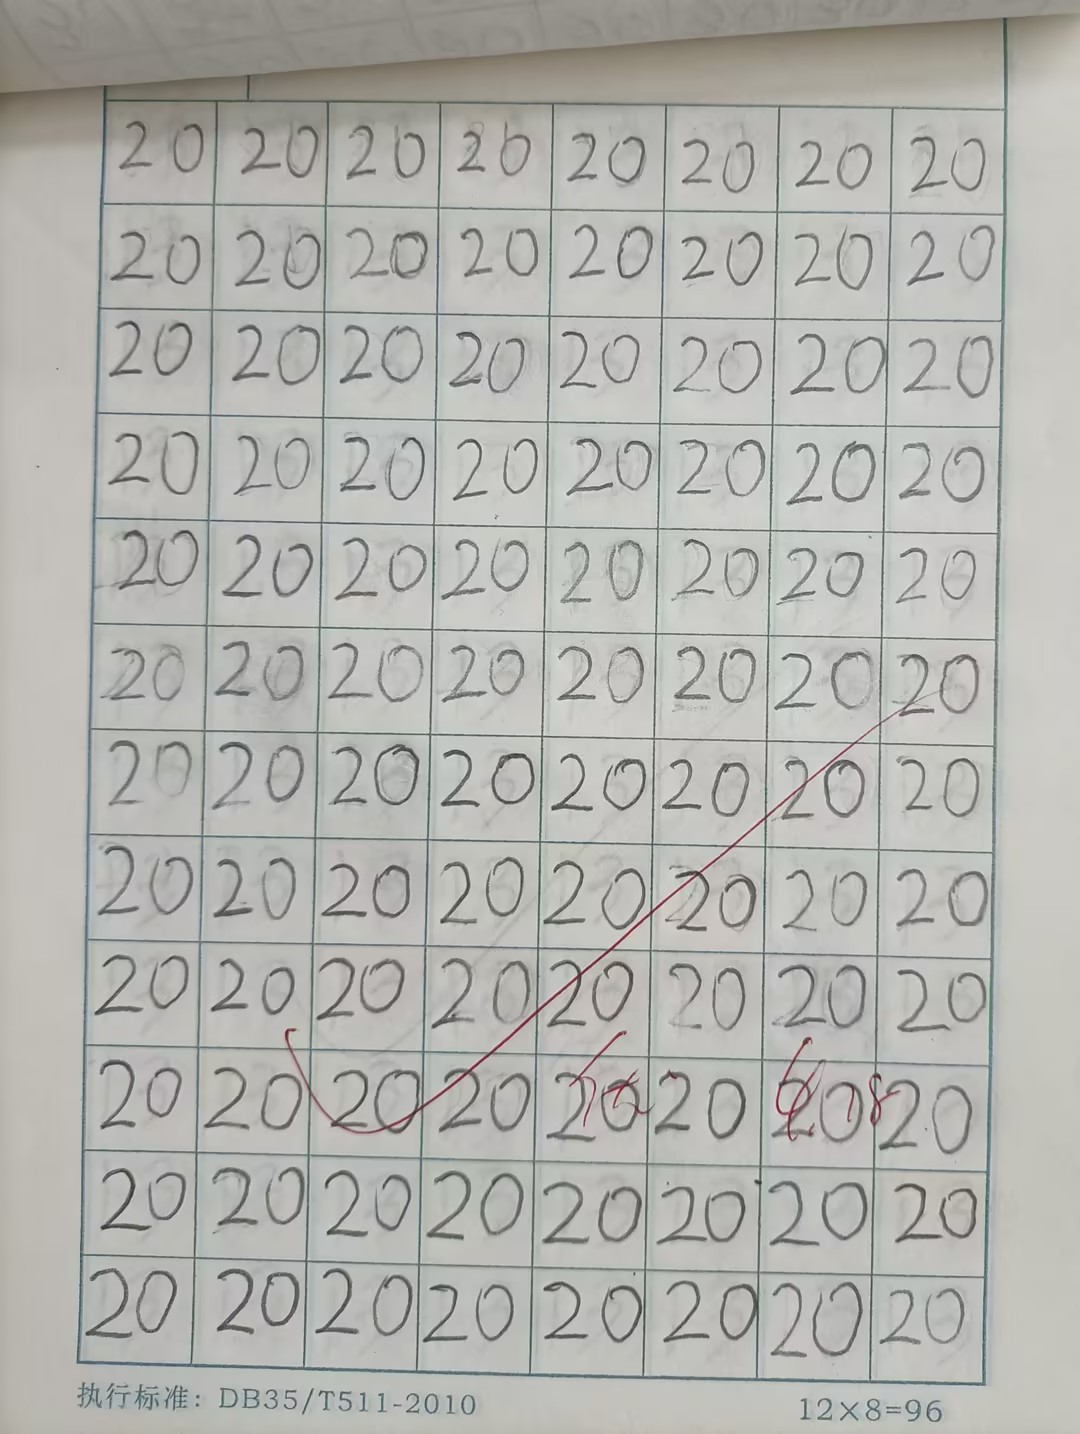 20 20 20 20 20 20 20 20
20 20 20 20 20 20 20 20
20 20 20 20 20 20 20 20
20 20 20 20 20 20 20 20
20 20 20 20 20 20 20 20
20 20 20 20 20 20 20 20
20 20 20 20 20 20 20 20
20 20 20 20 20 20 20 20
20 20 20 20 20 20 20 20
20 20 20 20 20 20 20 20
20 20 20 20 20 20 20 20
20 20 20 20 20 20 20 20
执行标准: DB35/T511-2010 12×8=96